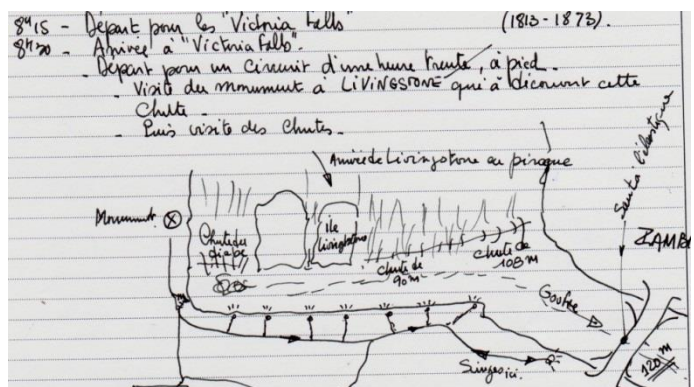 8h15 - Départ pour les "Victoria Falls" (1813-1873).
8h20 - Arrivée à "Victoria Falls".
- Départ pour un Circuit d'une heure trente, à pied -
- Visite du monument à LIVINGSTONE qui à découvert cette
Chute -
- Puis visite des Chutes -
Arrivée de Livingstone en pirogue
Monument
Chute du
diable
île
Livingstone
chute de
90 m
chute de
108 m
Saut à l'élastique
ZAMB
Gouffre
Singes ici.
P
120 m